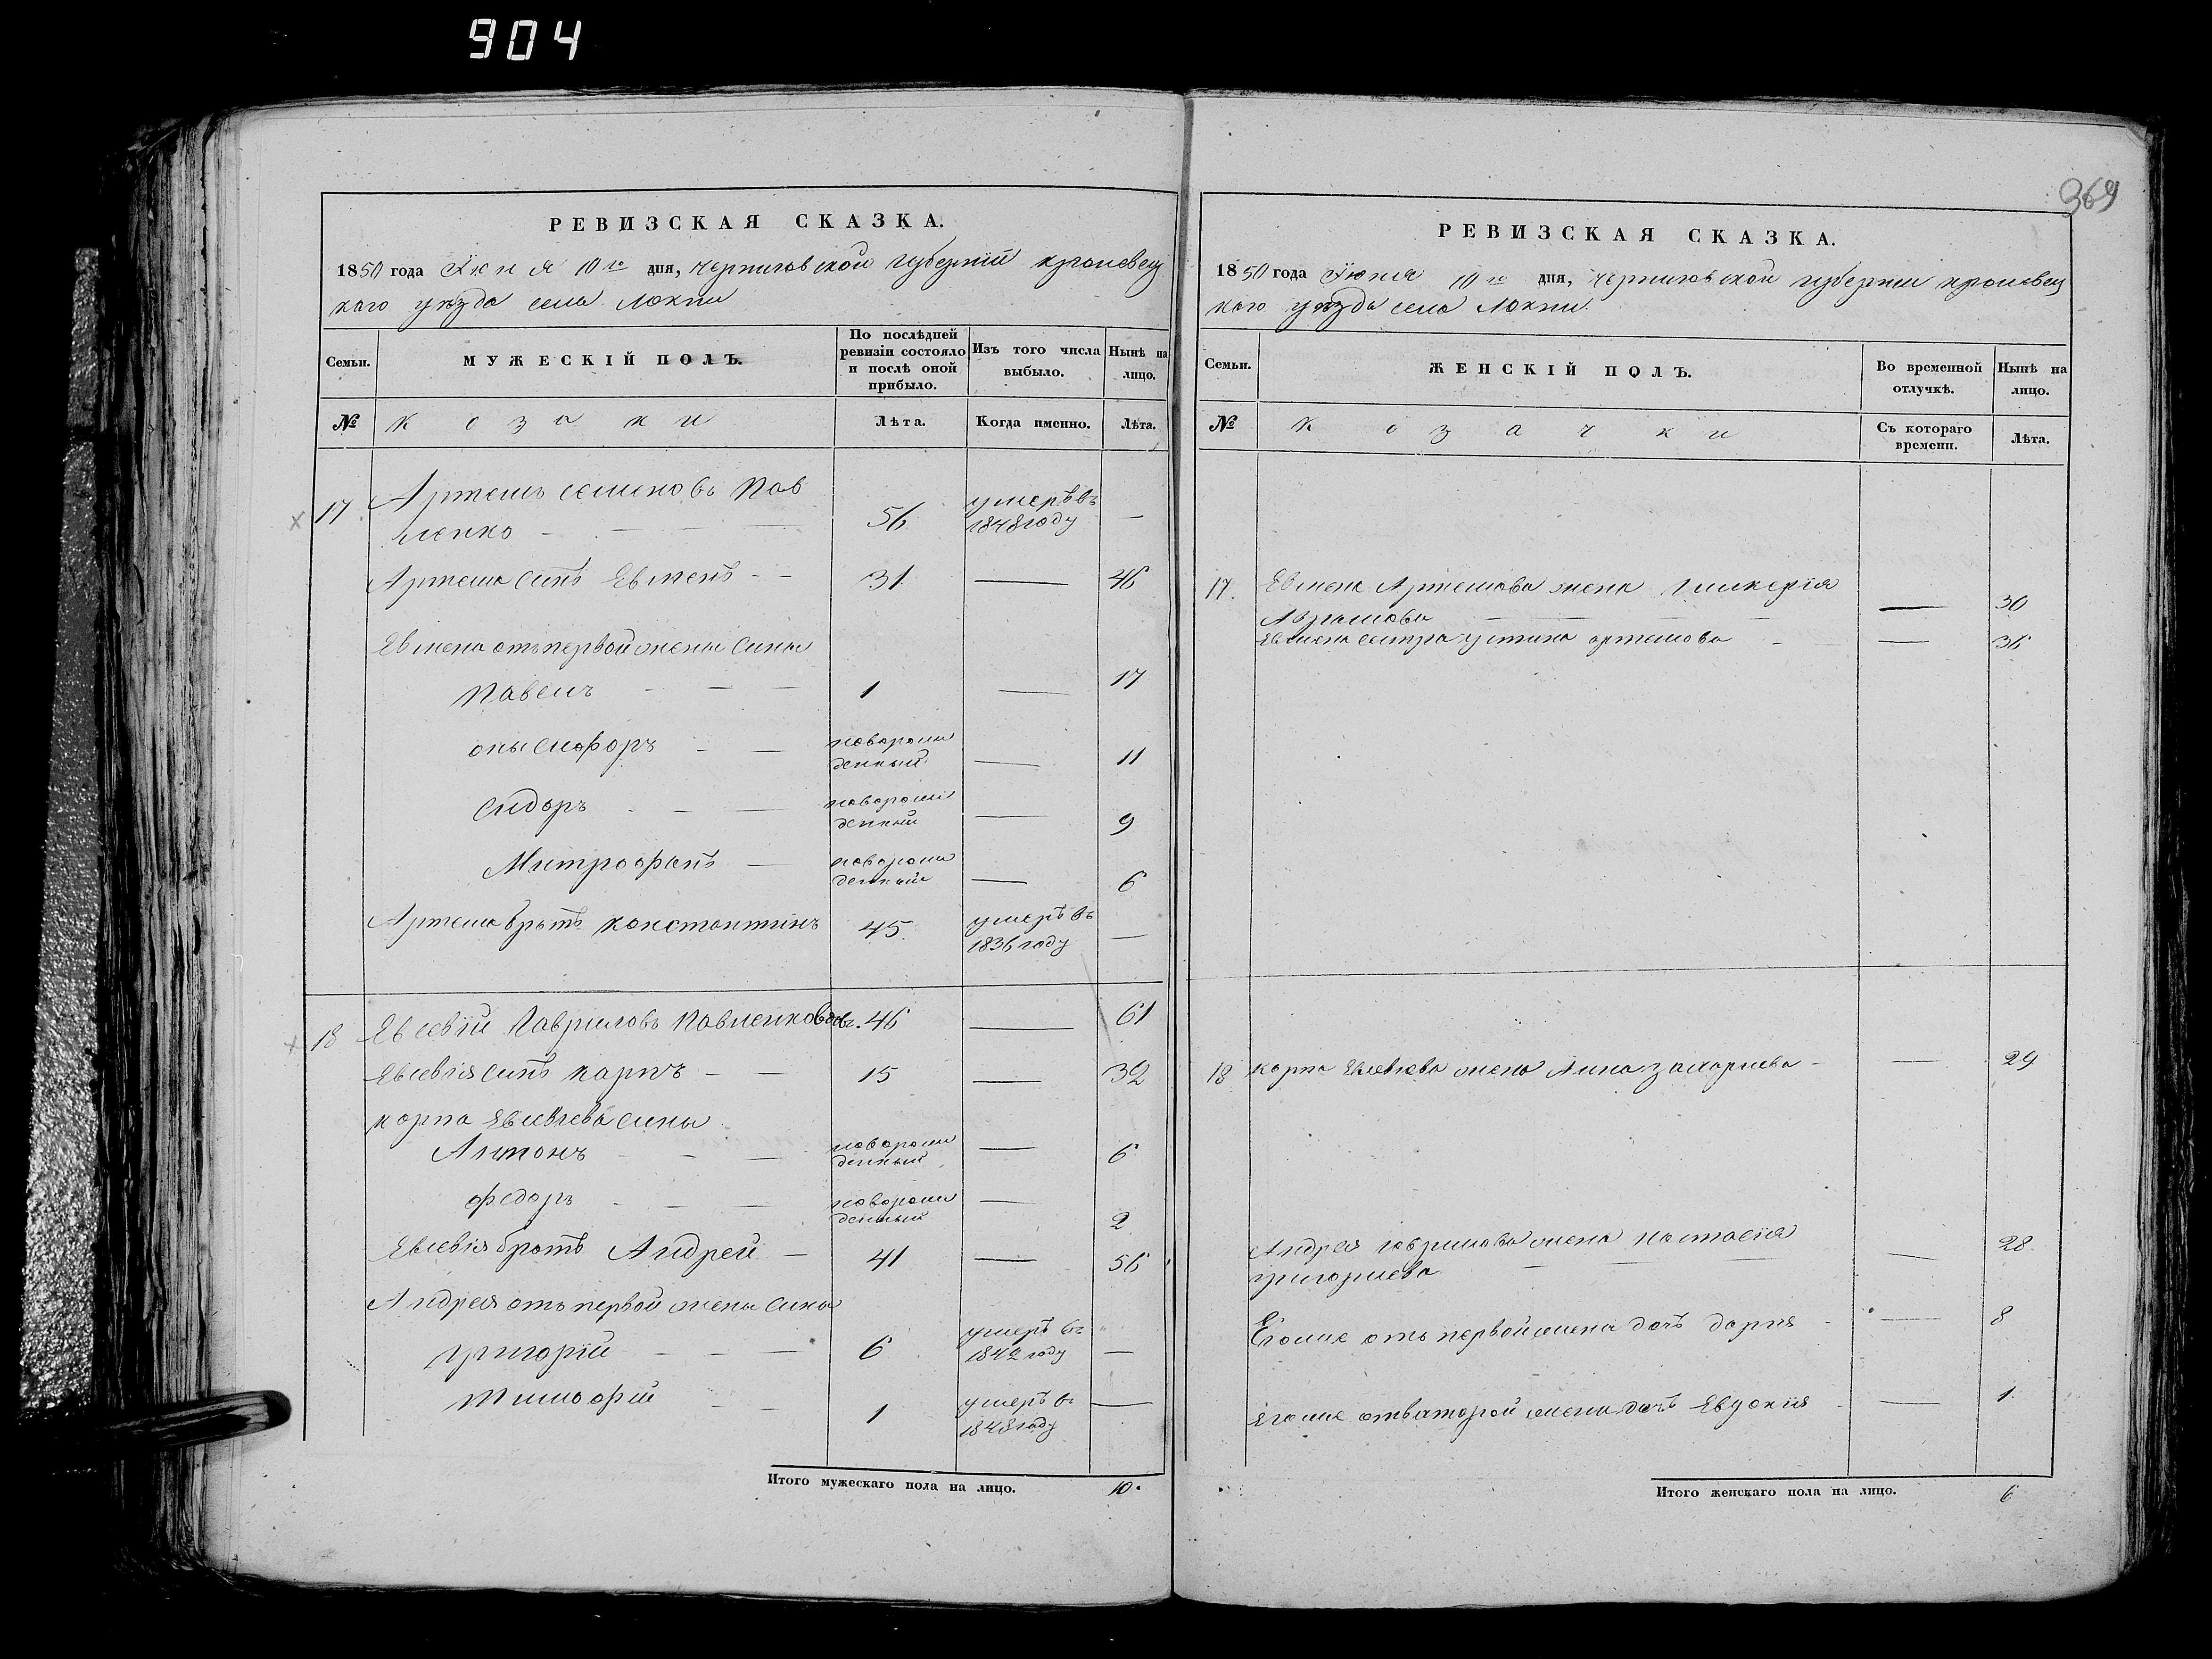 904
РЕВИЗСКАЯ СКАЗКА.
1850 года Іюня 10го дня, Черниговской губерніи кролевец
кого уѣзда села Локни
Семьи. МУЖЕСКІЙ ПОЛЪ. По послѣдней ревизіи состояло и послѣ оной прибыло. Изъ того числа выбыло. Нынѣ на лицо.
№ козаки Лѣта. Когда именно. Лѣта.
17 Артемъ Семеновъ Пав
ленко — — 56 умеръ въ 1848 году —
Артема синъ Евменъ - - 31 — 46
Евмена отъ первой жены сины
Павелъ - — — 1 — 17
онысифоръ - — новорож денный — 11
Сидоръ - — — новорож денный — 9
Митрофанъ — новорож денный — 6
Артема братъ Константинъ 45 умеръ въ 1836 году —
18 Евсевій Гавриловъ Павленко 46 — 61
Евсевія синъ Карпъ - — 15 — 32
Карпа Евсевіева сины
Антонъ - — новорож денный — 6
федоръ - — — новорож денный — 2
Евсевія братъ Андрей — 41 — 56
Андрея отъ первой жены сины
григорій — — — 6 умеръ въ 1842 году —
Тимофій - — 1 умеръ въ 1848 году —
Итого мужескаго пола на лицо. 10.
369
РЕВИЗСКАЯ СКАЗКА.
1850 года Іюня 10го дня, Черниговской губерніи кролевец
кого уѣзда села Локни.
Семьи. ЖЕНСКІЙ ПОЛЪ. Во временной отлучкѣ. Нынѣ на лицо.
№ козачки Съ котораго времени. Лѣта.
17. Евмена Артемова жена Гликерія
Абрамова — — — 30
Евмена сестра устина артемова - — 36
18 карпа Евсевіева жена Анна захаріева - — 29
Андрея гаврилова жена настасія
григориева — — — — 28
Егоже отъ первой жены дочь дарія - — 8
Егоже отъ второй жены дочь Евдокія - — 1
Итого женскаго пола на лицо. 6